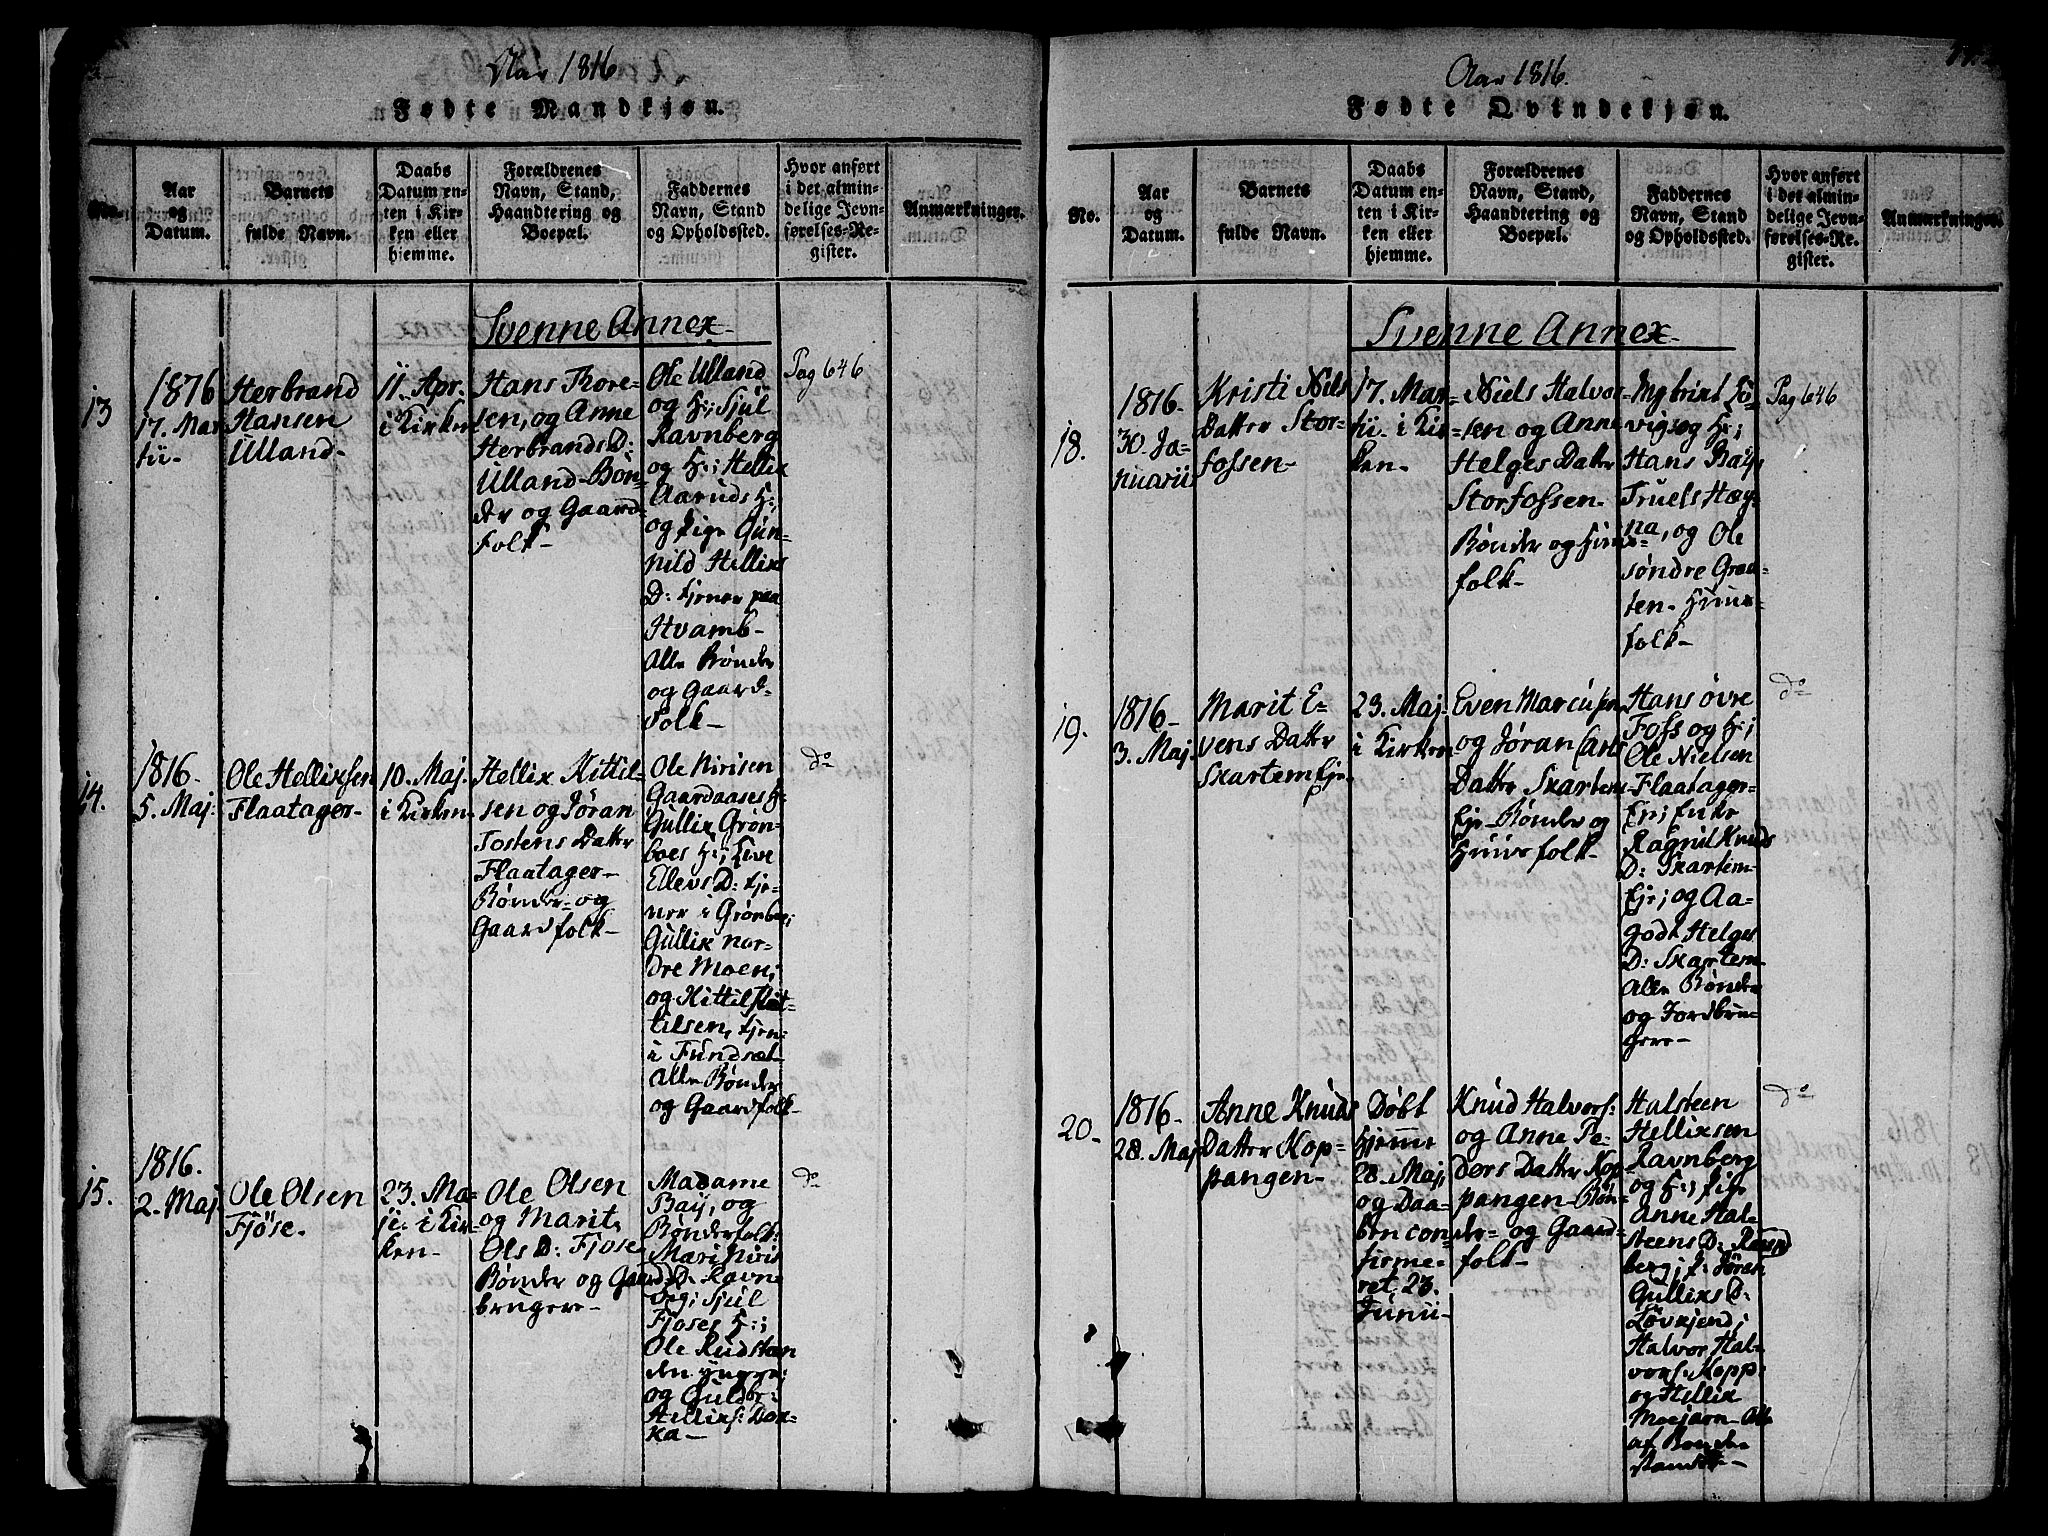 Aar 1816
Fødte Mandkjøn.
No.
Aar
og
Datum.
Barnets
fulde Navn.
Daabs
Datum en-
ten i Kir-
ken eller
hjemme.
Forældrenes
Navn, Stand,
Haandtering og
Boepæl.
Faddernes
Navn, Stand
og Opholdssted.
Hvor anført
i det almin-
delige Jevn-
førelses-Re-
gister.
Anmærkninger.
Svenne Annex
13
1816
17. Mar-
tii-
Herbrand
Hansen
Ulland-
11. Apr.
i Kirken
Hans Thore-
sen, og Anne
Herbrands D:
Ulland-Bøn-
der og Gaard-
folk-
Ole Ulland
og H:; Sjul
Ravnberg
og H:; Hellix
Aaruds H:;
og Pige Gun-
nild Hellixs
D: tjener paa
Hvamb-
Alle Bønder
og Gaard-
folk-
Pag 646
14.
1816.
5. Maj:
Ole Hellixsen
Flaatager-
10. Maj.
i Kirken-
Hellix Kittil-
sen og Jøran
Tostens Datter
Flaatager-
Bønder- og
Gaardfolk-
Ole Nirisen
Gaardaases H:
Gullix Grøn-
boes H:;
Elevs D: tje-
ner i Grønboe;
Gullix nor-
dre Moen;
og Kittil Kit-
tilsen, tjen:
i Fundsæt-
Alle Bønder
og Gaardfolk-
do
15.
1816.
2. Maj.
Ole Olsen
Fjøse.
23. Ma-
je. i Kir-
ken-
Ole Olsen
og Marit
Ols D: Fjøse
Bønder og Gaard-
brugere-
Madame
Baÿ, og
Bønderfolk:
Mari Niris
D: Ravne
berg; Sjul
Fjøses H:;
Ole Rudstøen
den ÿngre;
og Guldbr:
Hellixs: Dok-
ka-
do
Aar 1816.
Fødte Qvindekjøn.
No.
Aar
og
Datum.
Barnets
fulde Navn.
Daabs
Datum en-
ten i Kir-
ken eller
hjemme.
Forældrenes
Navn, Stand,
Haandtering og
Boepæl.
Faddernes
Navn, Stand
og Opholdssted.
Hvor anført
i det almin-
delige Jevn-
førelses-Re-
gister.
Anmærkninger.
Svenne Annex
18.
1816.
30. Ja-
nuarii
Kristi Niels
Datter Stor-
fossen-
17. Mar-
tii- i Kir-
ken-
Niels Halvor-
sen og Anne
Helges Datter
Storfossen-
Bønder og Huus-
folk-
og H:;
Hans Baÿ,
Truels Hæÿ-
na, og Ole
søndre Graa-
ten- Huus-
folk-
Pag 646
19.
1816-
3. Maj
Marit E-
vens Datter
Skartem Eje-
23. Maj.
i Kirken
Even Marcusen
og Jøran Carls
Datter Skartem
Eje- Bønder og
Huusfolk-
Hans øvre
Foss og H:;
Ole Nielsen
Flaatager-
Eje; Enke
Ragnil Knuds
D: Skartem-
Eje; og Aa-
godt Helges
D: Skartem-
Alle Bønder
og Jordbru-
gere-
do
20-
1816-
28. Maj
Anne Knuds
Datter Kop-
pangen-
Døbt
hjemme
28. Maj,
og Daa-
ben con-
firme-
ret 23.
Junii-
Knud Halvors:
og Anne Pe-
ders Datter Kop-
pangen- Bøn-
der- og Gaard-
folk-
Halsteen
Hellixsen
Ravnberg
og H:; Pige
Anne Hal-
steens D: Ravn-
berg; P: Jøran
Gullixs D:
Løvkjend;
Halvor Hal-
vors: Kopp:
og Hellix
Moejarn- Alle
af Bonde-
standen-
do